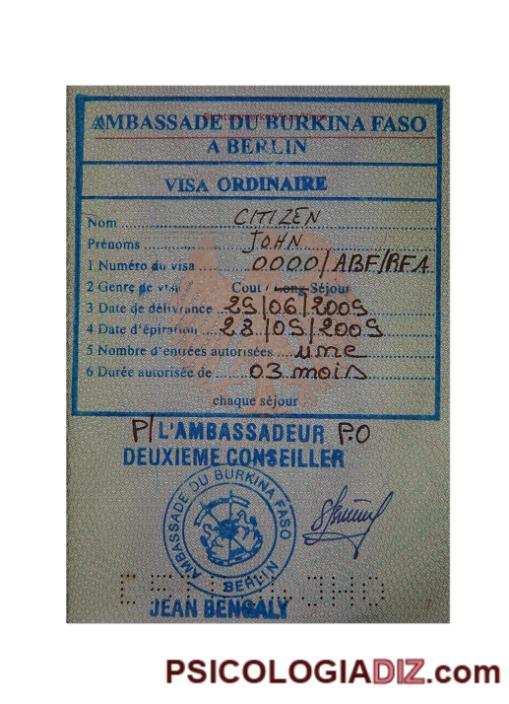 AMBASSADE DU BURKINA FASO
A BERLIN
VISA ORDINAIRE
Nom CITIZEN
Prénoms JOHN
1 Numéro du visa 0000/ABF/RFA
2 Genre de visa Cout / Long Séjour
3 Date de délivrance 29/06/2009
4 Date d'épiration 28/09/2009
5 Nombre d'entrées autorisées une
6 Durée autorisée de 03 mois
chaque séjour
P/ L'AMBASSADEUR P.O
DEUXIEME CONSEILLER
AMBASSADE DU BURKINA FASO
BERLIN
JEAN BENGALY
7
PSICOLOGIADIZ.com